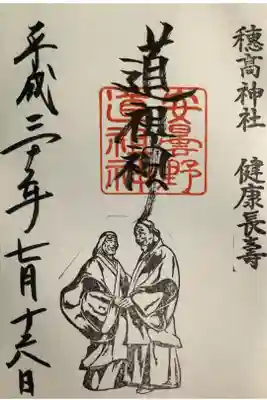 穂高神社　健康長寿
道祖神
安曇野
道祖神
平成三十年七月十六日